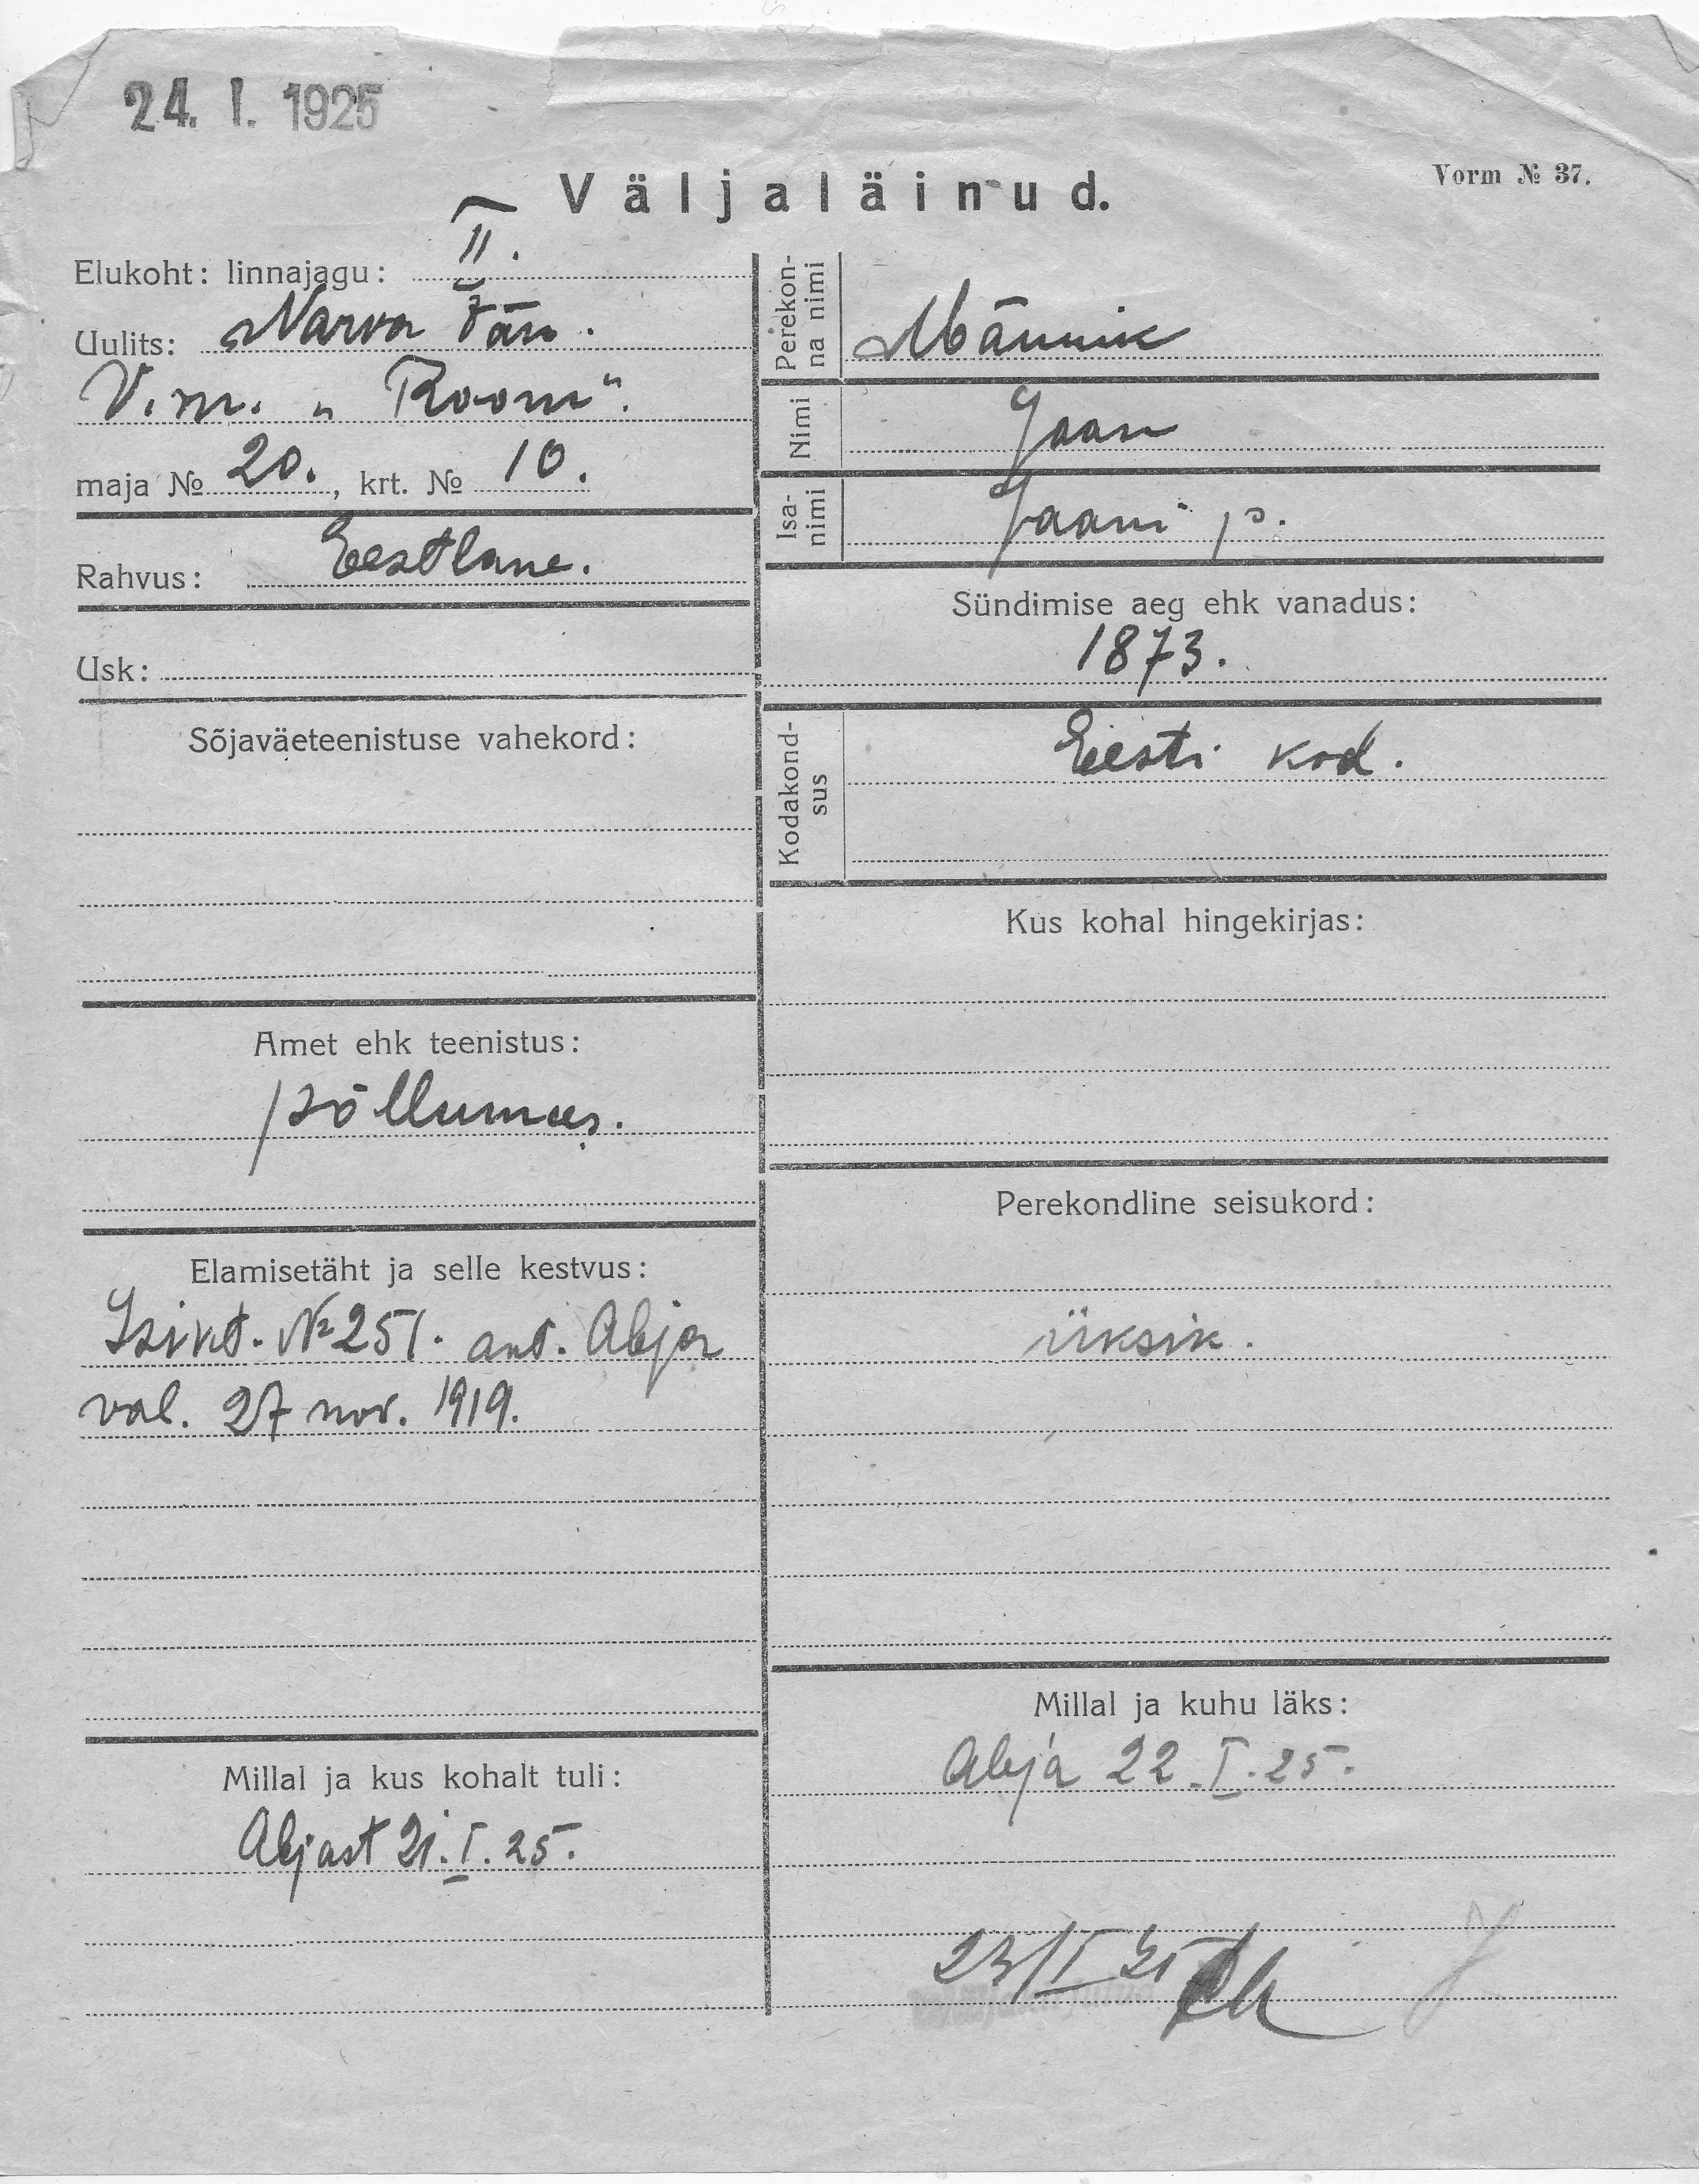 24. I. 1925
Väljaläinud.
Vorm № 37.
Elukoht: linnajagu: II.
Uulits: Narva tän.
V. m. „Room“.
maja № 20., krt. № 10.
Rahvus: Eestlane.
Usk:
Sõjaväeteenistuse vahekord:
Amet ehk teenistus:
põllumees.
Elamisetäht ja selle kestvus:
Isikt. № 251. ant. Abja
val. 27 nov. 1919.
Millal ja kus kohalt tuli:
Abjast 21. I. 25.
Perekonna nimi
Männik
Nimi
Jaan
Isanimi
Jaani p.
Sündimise aeg ehk vanadus:
1873.
Kodakondsus
Eesti kod.
Kus kohal hingekirjas:
Perekondline seisukord:
üksik.
Millal ja kuhu läks:
Abja 22. I. 25.
23/I